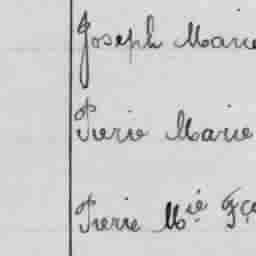 Joseph Marie
Pierre Marie
Pierre Mie Fço